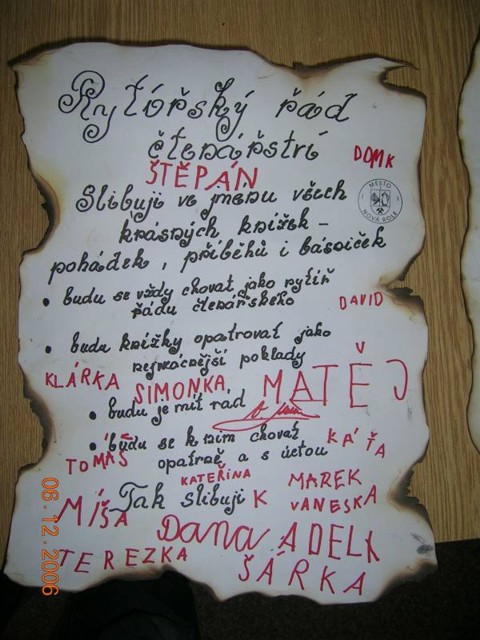 Rytířský řád
čtenářství
DOMK
ŠTĚPÁN
MĚSTO
NOVÁ ROLE
Slibuji ve jménu všech
krásných knížek -
pohádek, příběhů i básniček
• budu se vždy chovat jako rytíř
řádu čtenářského
DAVID
• budu knížky opatrovat jako
nejvzácnější poklady
KLÁRKA SIMONKA MATĚJ
• budu je mít rád
• budu se k nim chovat
KÁŤA
TOMÁŠ
opatrně a s úctou
KATEŘINA
MAREK
Tak slibuji K
VANESKA
MÍŠA
Dana ADELK
TEREZKA
ŠÁRKA
08.12.2006